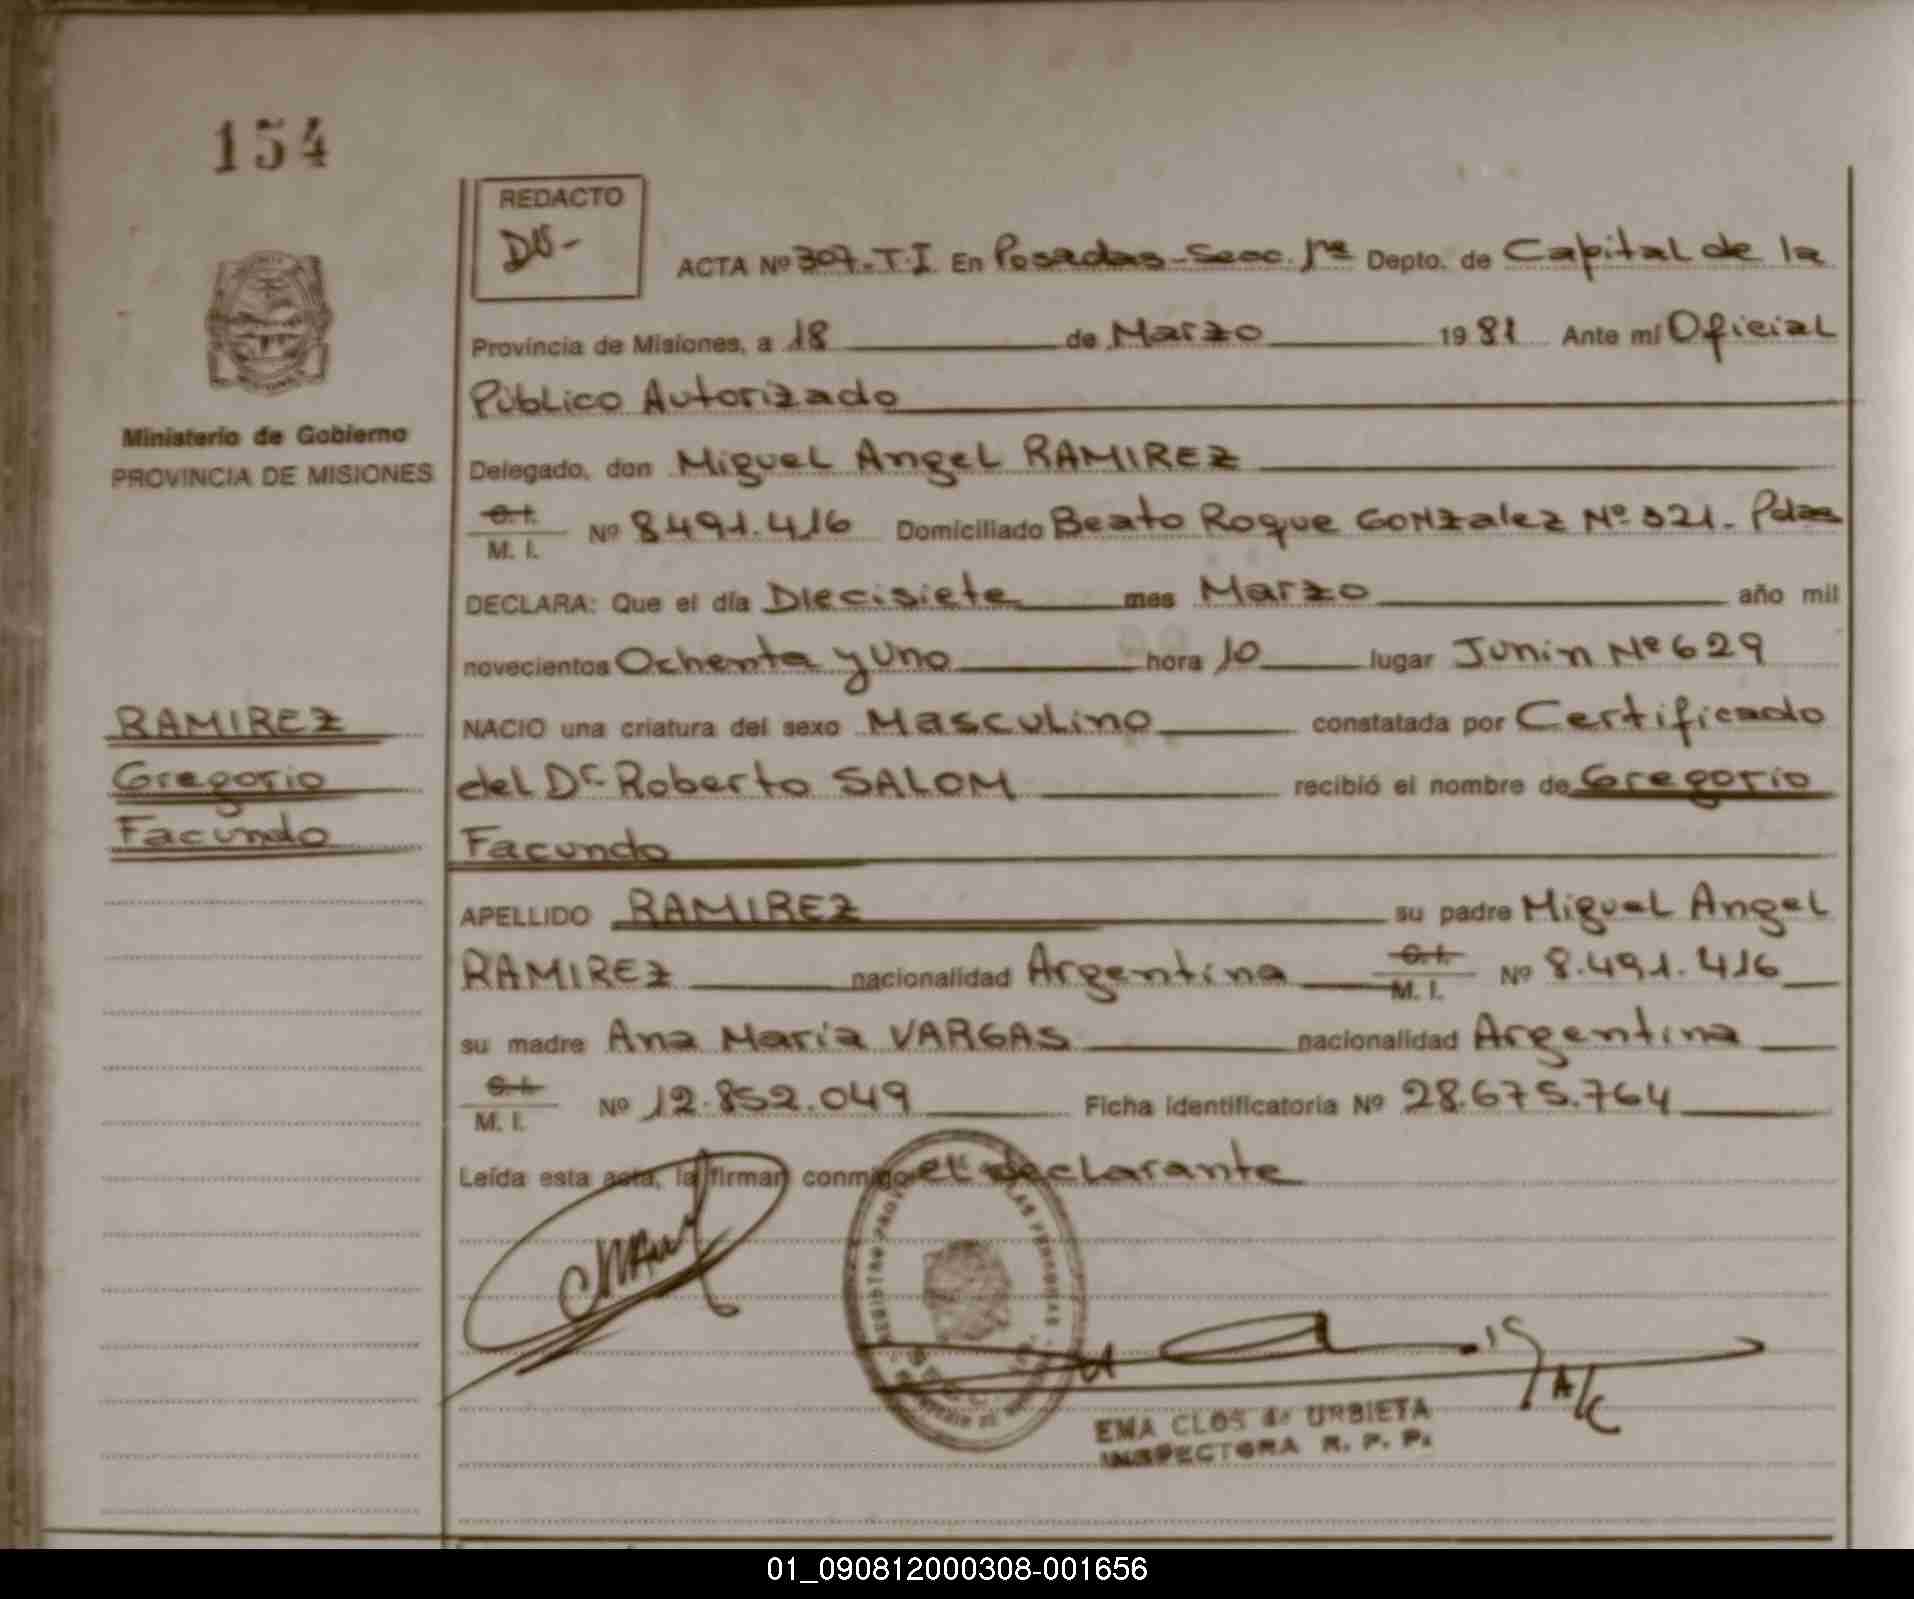 154
REDACTO
DU-
ACTA Nº 307-T-I En Posadas-Secc. 1ra Depto. de Capital de la
Provincia de Misiones, a 18 de Marzo 1981 Ante mí Oficial
Público Autorizado
Ministerio de Gobierno
PROVINCIA DE MISIONES
Delegado, don Miguel Angel RAMIREZ
C.I.
M. I. Nº 8491.416 Domiciliado Beato Roque Gonzalez Nº 321- Pdas
DECLARA: Que el día Diecisiete mes Marzo año mil
novecientos Ochenta y Uno hora 10 lugar Junin Nº 629
RAMIREZ
Gregorio
Facundo
NACIO una criatura del sexo Masculino constatada por Certificado
del Dr. Roberto SALOM recibió el nombre de Gregorio
Facundo
APELLIDO RAMIREZ su padre Miguel Angel
RAMIREZ nacionalidad Argentina C.I. M. I. Nº 8.491.416
su madre Ana Maria VARGAS nacionalidad Argentina
C.I.
M. I. Nº 12.852.049 Ficha identificatoria Nº 28.675.764
Leída esta acta, la firman conmigo el declarante
EMA CLOS de URBIETA
INSPECTORA R. P. P.
01_090812000308-001656